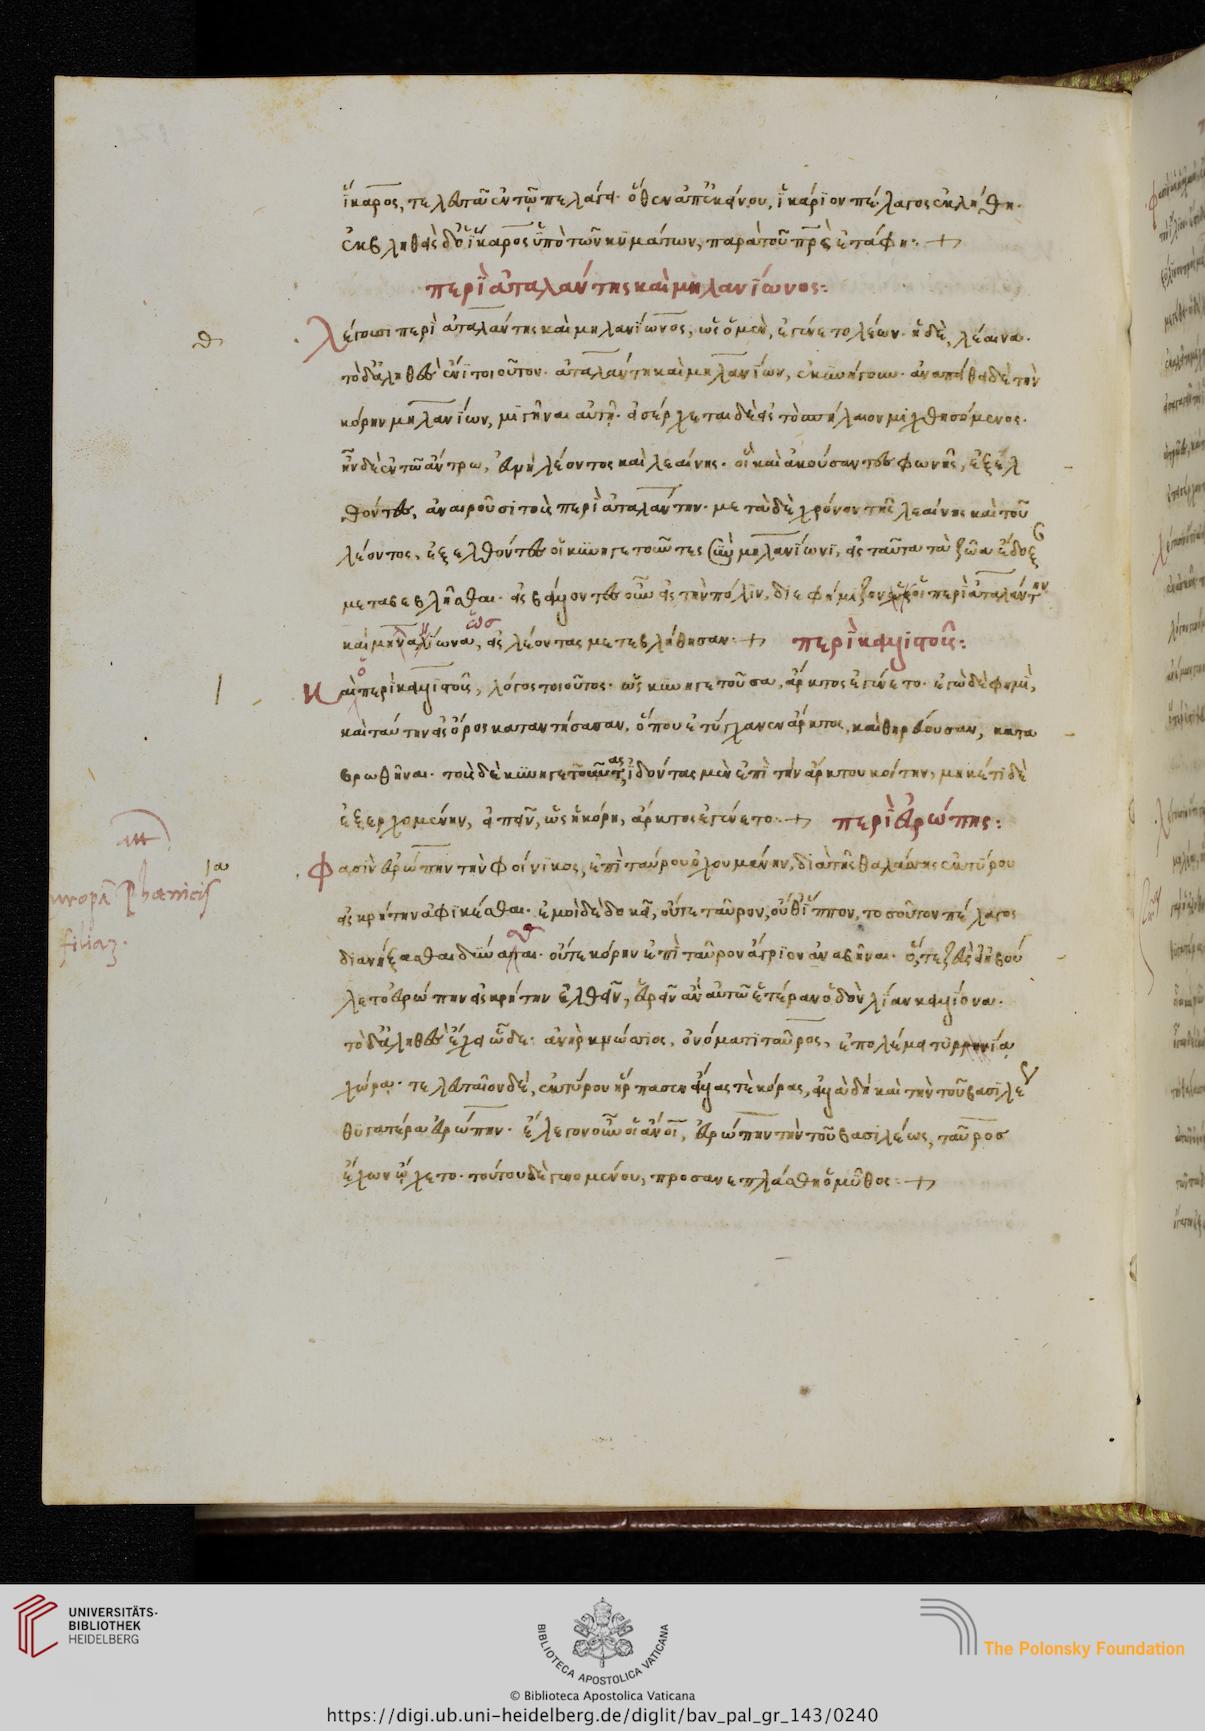 ἴκαρος, τελευτᾶ ἐν τῶ πελάγει· ὅθεν ἀπ' ἐκείνου, ἰκάριον πέλαγος ἐκλήθη·
ἐκβληθεὶς δὲ ὁ ἴκαρος ὑπὸ τῶν κυμάτων, παρὰ τοῦ πρς ἐτάφη:
περὶ ἀταλάντης καὶ μηλανίωνος:
θ
λέγουσι περὶ ἀταλάντης καὶ μηλανίωνος, ὡς ὁ μὲν, ἐγένετο λέων· ἡ δὲ, λέαινα·
τὸ δ' ἀληθὲς ἐνὶ τοιοῦτον· ἀταλάντη καὶ μηλανίων, ἐκυνήγουν· ἀναπείθει δὲ τὴν
κόρην μηλανίων, μιγῆναι αὐτῆ· εἰσέρχεται δὲ εἰς τὸ σπήλαιον μιχθησόμενος·
ἦν δὲ ἐν τῶ ἄντρω, εὐνὴ λέοντος καὶ λεαίνης· οἳ καὶ ἀκούσαντες φωνῆς, ἐξελ
θόντες, ἀναιροῦσι τοὺς περὶ ἀταλάντην· μετὰ δὲ χρόνον τῆς λεαίνης καὶ τοῦ
λέοντος, ἐξελθόντες οἱ κυνηγετοῦντες σὺν μηλανίωνι, εἰς ταῦτα τὰ ζῶα ἔδοξ
μεταβεβλῆσθαι· εἰσβάλλοντες οὖν εἰς τὴν πόλιν, διεφήμιζον οἱ περὶ ἀταλάντην
ὡς
καὶ μηναλίωνα, εἰς λέοντας μετεβλήθησαν: περὶ καλλιστοῦς:
ι
Καὶ ὁ περὶ καλλιστοῦς, λόγος τοιοῦτος· ὡς κυνηγετοῦσα, ἄρκτος ἐγένετο· ἐγὼ δὲ φημὶ,
καὶ ταύτην εἰς ὄρος καταντήσασαν, ὅπου ἐτύγχανεν ἄρκτος, καὶ θηρεύουσαν, κατα
βρωθῆναι· τοὺς δὲ κυνηγετοῦντας, ἰδόντας μὲν ἐπὶ τὴν ἄρκτου κοίτην, μηκέτι δὲ
ἐξερχομένην, εἰπεῖν, ὡς ἡ κόρη, ἄρκτος ἐγένετο: περὶ εὐρώπης:
ια
Europa Phoenicis
filia
Φασὶν εὐρώπην τὴν φοίνικος, ἐπὶ ταύρου ὀχουμένην, διὰ τῆς θαλάσσης ἐκ τύρου
εἰς κρήτην ἀφικέσθαι· ἐμοὶ δὲ δοκεῖ, οὔτε ταῦρον, οὔθ' ἵππον, τοσοῦτον πέλαγος
διανήξασθαι δύνασθαι· οὔτε κόρην ἐπὶ ταῦρον ἄγριον ἀναβῆναι· ὅ, τε ζεὺς εἰ ἐβού
λετο εὐρώπην εἰς κρήτην ἐλθεῖν, εὑρεῖν ἂν αὐτῶ ἑτέραν ὁδὸν λίαν καλλίονα·
τὸ δ' ἀληθὲς ἔχει ὧδε: ἀνὴρ κνώσσιος, ὀνόματι ταῦρος, ἐπολέμει τυρρηνία
χώρα· τελευταῖον δὲ, ἐκ τύρου ἥρπασεν ἄλλας τὲ κόρας, ἀλλὰ δὴ καὶ τὴν τοῦ βασιλέ
θυγατέρα εὐρώπην· ἔλεγον οὖν οἱ ἄνοι, εὐρώπην τὴν τοῦ βασιλέως, ταῦρος
ἔχων ᾤχετο· τούτου δὲ γενομένου, προσανεπλάσθη ὁ μῦθος:
UNIVERSITÄTS-
BIBLIOTHEK
HEIDELBERG
BIBLIOTECA APOSTOLICA VATICANA
The Polonsky Foundation
© Biblioteca Apostolica Vaticana
https://digi.ub.uni-heidelberg.de/diglit/bav_pal_gr_143/0240